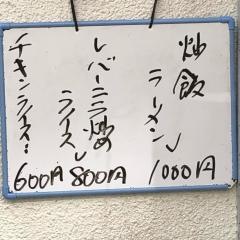 炒飯
ラーメン
1000円
レバーニラ炒め
ライス
800円
チキンライス…
600円